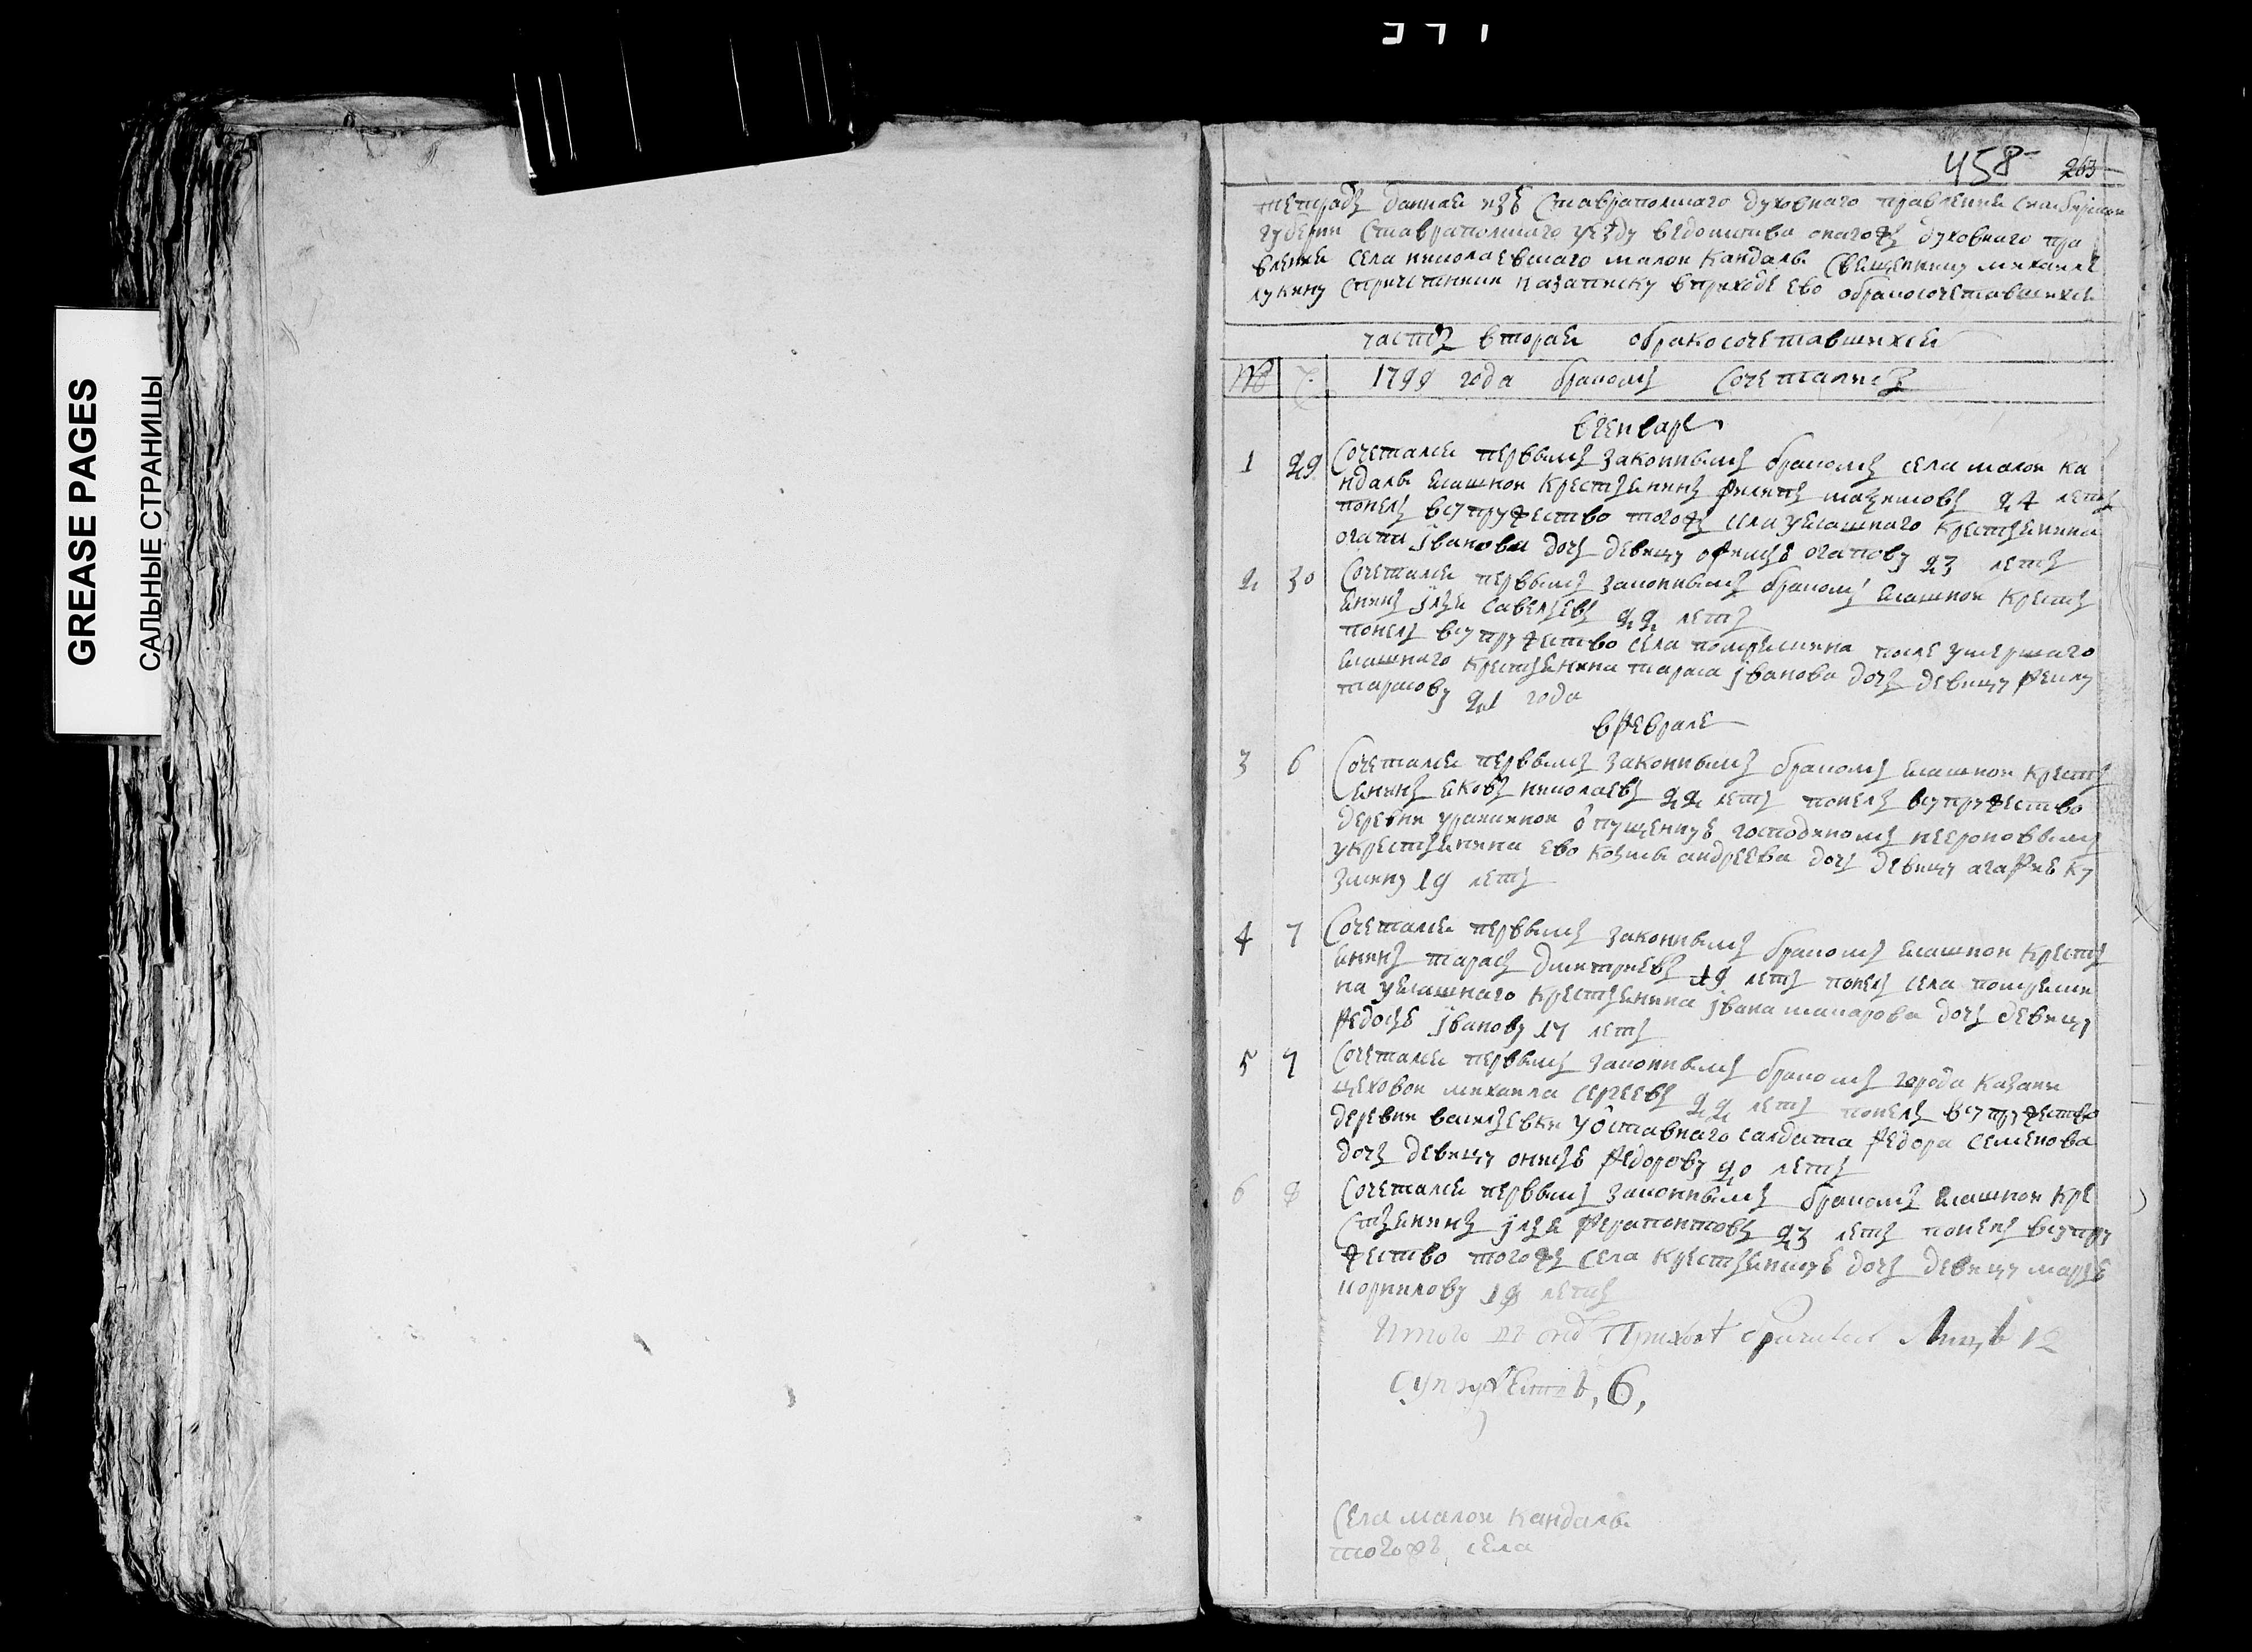 GREASE PAGES
САЛЬНЫЕ СТРАНИЦЫ
458
263
тетрадь данная изъ Ставраполскаго духовнаго правления Синбирской
губернии Ставраполскаго уезду ведомства онагожъ духовнаго пра
вления села николаевскаго малой Кандалы Священнику михаиле
лукину спричетники назаписку вприходе ево обракосочетавшихся
часть вторая обракосочетавшихся
№ 1799 года бракомъ Сочеталисъ
вгенваре
1 29 Сочетался первымъ законнымъ бракомъ села малой ка
ндалы ясашной Крестьянинъ филипъ 24 летъ
понелъ всупружество тогожъ села уясашнаго Крестьянина
агапа иванова дочь девицу агапову 23 летъ
2 30 Сочетался первымъ законнымъ бракомъ ясашной Кресть
янинъ илья савельевъ 22 летъ
понелъ всупружество села после умершаго
ясашнаго Крестьянина тараса иванова дочь девицу феклу
тарасову 21 года
вфеврале
3 6 Сочетался первымъ законнымъ бракомъ ясашной Кресть
янинъ яковъ николаевъ 22 летъ понелъ всупружество
деревни опущенную господиномъ
укрестьянина ево козмы андреева дочь девицу агафью ку
змину 19 летъ
4 7 Сочетался первымъ законнымъ бракомъ ясашной Кресть
янинъ тарасъ дмитриевъ 19 летъ понелъ села
на уясашнаго Крестьянина ивана макарова дочь девицу
федосью иванову 17 летъ
5 7 Сочетался первымъ законнымъ бракомъ города Казани
цеховой михаила сергеевъ 22 летъ понелъ всупружество
деревни васильевки уотставнаго салдата федора семенова
дочь девицу федорову 20 летъ
6 8 Сочетался первымъ законнымъ бракомъ ясашной Кре
стьянинъ илья ферапонтовъ 23 летъ понелъ всупру
жество тогожъ села дочь девицу марью
корнилову 19 летъ
Итого приходе лицъ 12
супружествъ, 6,
Села малой Кандалы
тогожъ села